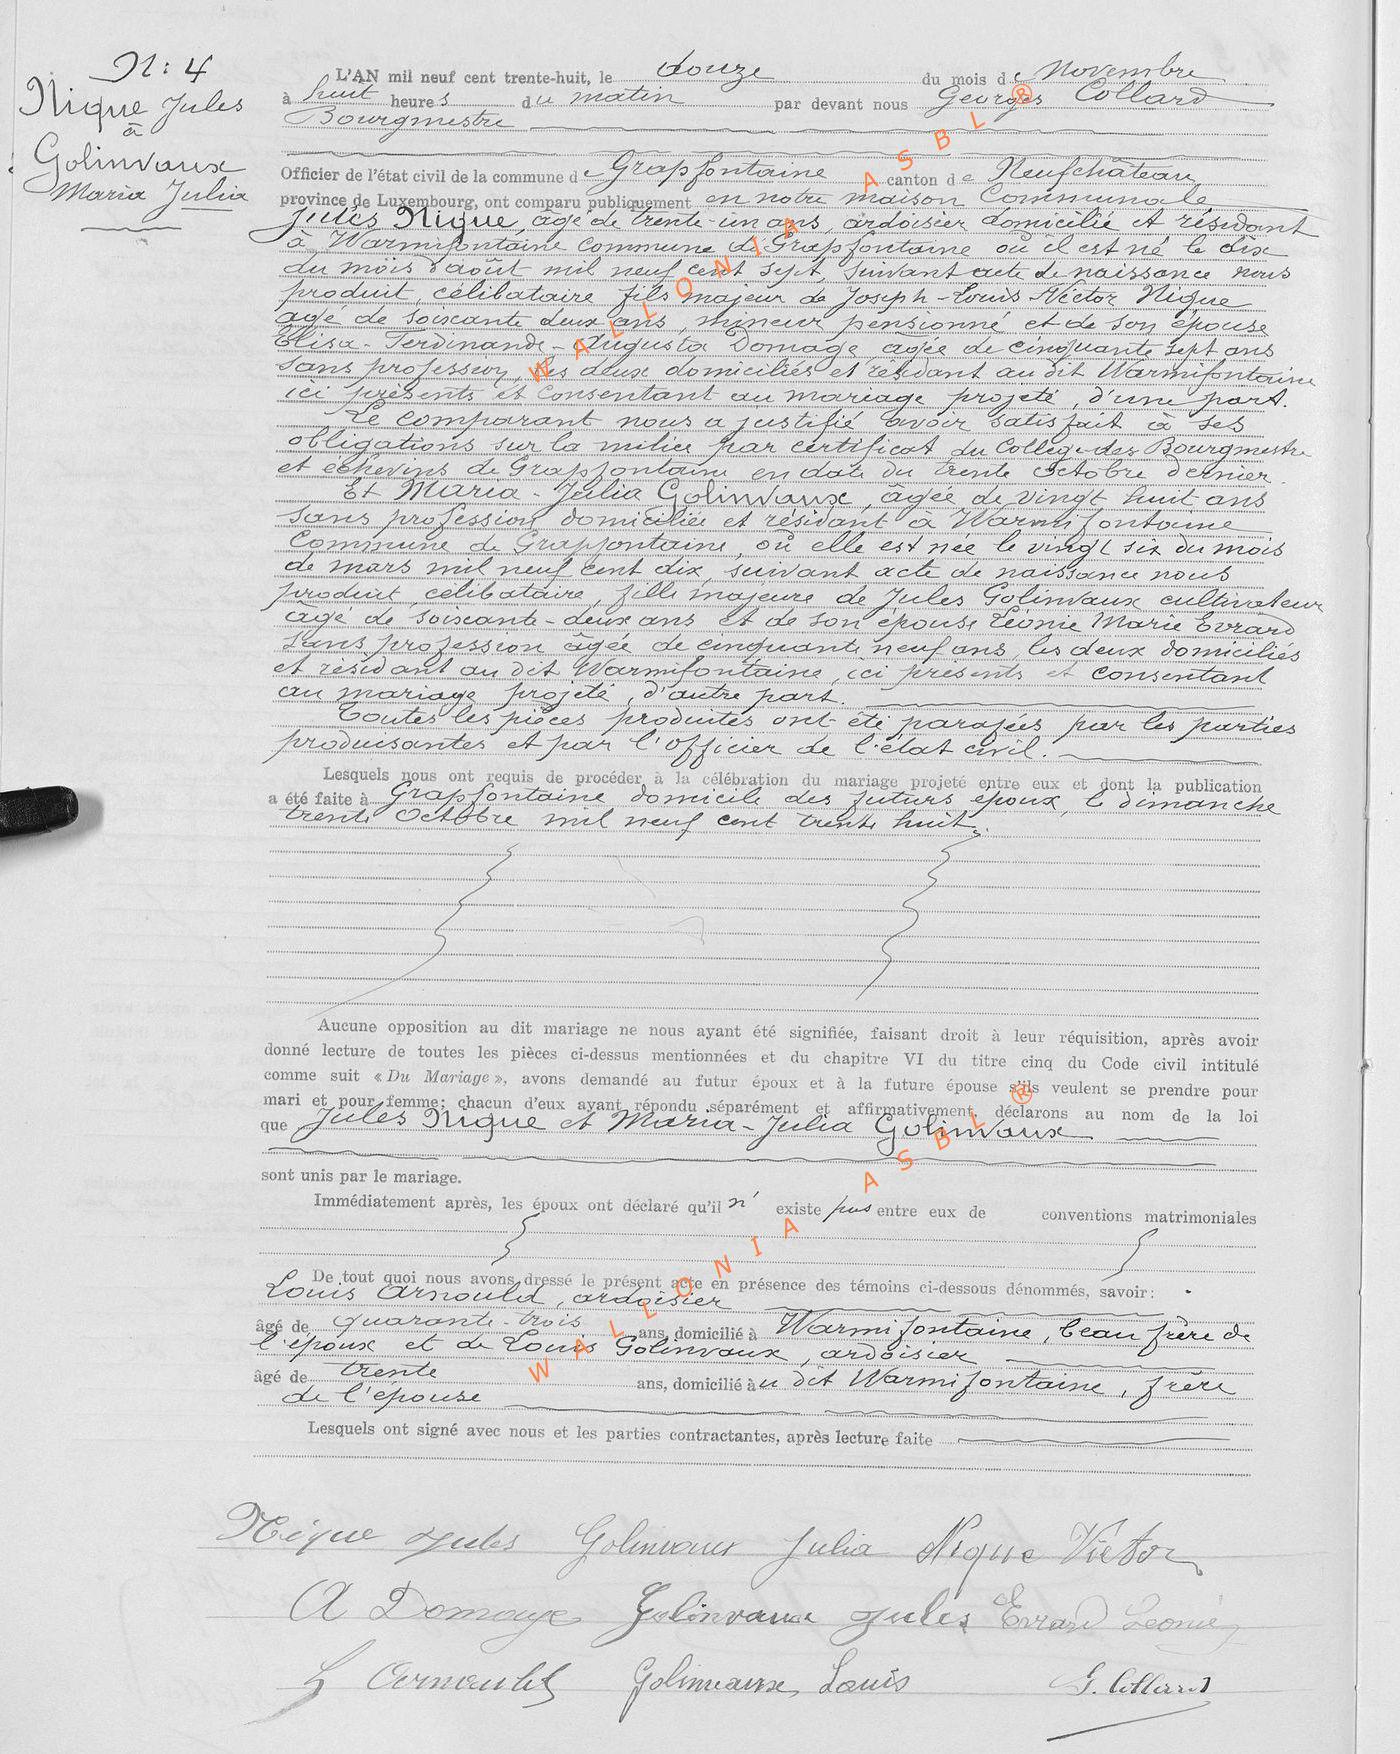 N: 4
Nique Jules
à
Golinvaux
Maria Julia
L'AN mil neuf cent trente-huit, le douze du mois de Novembre
à huit heures du matin par devant nous Georges Collard
Bourgmestre
Officier de l'état civil de la commune de Grapfontaine canton de Neufchâteau
province de Luxembourg, ont comparu publiquement en notre maison Communale
Jules Nique, âgé de trente-un ans, ardoisier domicilié et résidant
à Warmifontaine commune de Grapfontaine où il est né le dix
du mois d'août mil neuf cent sept, suivant acte de naissance nous
produit, célibataire fils majeur de Joseph-Louis Victor Nique
âgé de soixante deux ans, mineur pensionné et de son épouse
Elisa-Ferdinande-Augusta Domage, âgée de cinquante sept ans
sans profession, les deux domiciliés et résidant au dit Warmifontaine
ici présents et consentant au mariage projeté, d'une part.
Le comparant nous a justifié avoir satisfait à ses
obligations sur la milice par certificat du Collège des Bourgmestre
et échevins de Grapfontaine en date du trente octobre dernier.
Et Maria-Julia Golinvaux, âgée de vingt huit ans
sans profession, domiciliée et résidant à Warmifontaine
Commune de Grapfontaine, où elle est née le vingt six du mois
de mars mil neuf cent dix, suivant acte de naissance nous
produit, célibataire, fille majeure de Jules Golinvaux cultivateur
âgé de soixante-deux ans et de son épouse Léonie Marie Evrard
sans profession âgée de cinquante neuf ans, les deux domiciliés
et résidant au dit Warmifontaine, ici présents et consentant
au mariage projeté, d'autre part.
Toutes les pièces produites ont été parafées par les parties
produisantes et par l'officier de l'état civil.
Lesquels nous ont requis de procéder à la célébration du mariage projeté entre eux et dont la publication
a été faite à Grapfontaine domicile des futurs époux, le dimanche
trente Octobre mil neuf cent trente huit.
Aucune opposition au dit mariage ne nous ayant été signifiée, faisant droit à leur réquisition, après avoir
donné lecture de toutes les pièces ci-dessus mentionnées et du chapitre VI du titre cinq du Code civil intitulé
comme suit « Du Mariage », avons demandé au futur époux et à la future épouse s'ils veulent se prendre pour
mari et pour femme; chacun d'eux ayant répondu séparément et affirmativement, déclarons au nom de la loi
que Jules Nique et Maria-Julia Golinvaux
sont unis par le mariage.
Immédiatement après, les époux ont déclaré qu'il n' existe pas entre eux de conventions matrimoniales
De tout quoi nous avons dressé le présent acte en présence des témoins ci-dessous dénommés, savoir:
Louis Arnould, ardoisier
âgé de quarante-trois ans, domicilié à Warmifontaine, beau frère de
l'époux et de Louis Golinvaux, ardoisier
âgé de trente ans, domicilié au dit Warmifontaine, frère
de l'épouse
Lesquels ont signé avec nous et les parties contractantes, après lecture faite
Nique Jules Golinvaux Julia Nique Victor
A Domage Golinvaux Jules Evrard Leonie
L Arnould Golinvaux Louis G. Collard
WALLONIA ASBL ®
WALLONIA ASBL ®